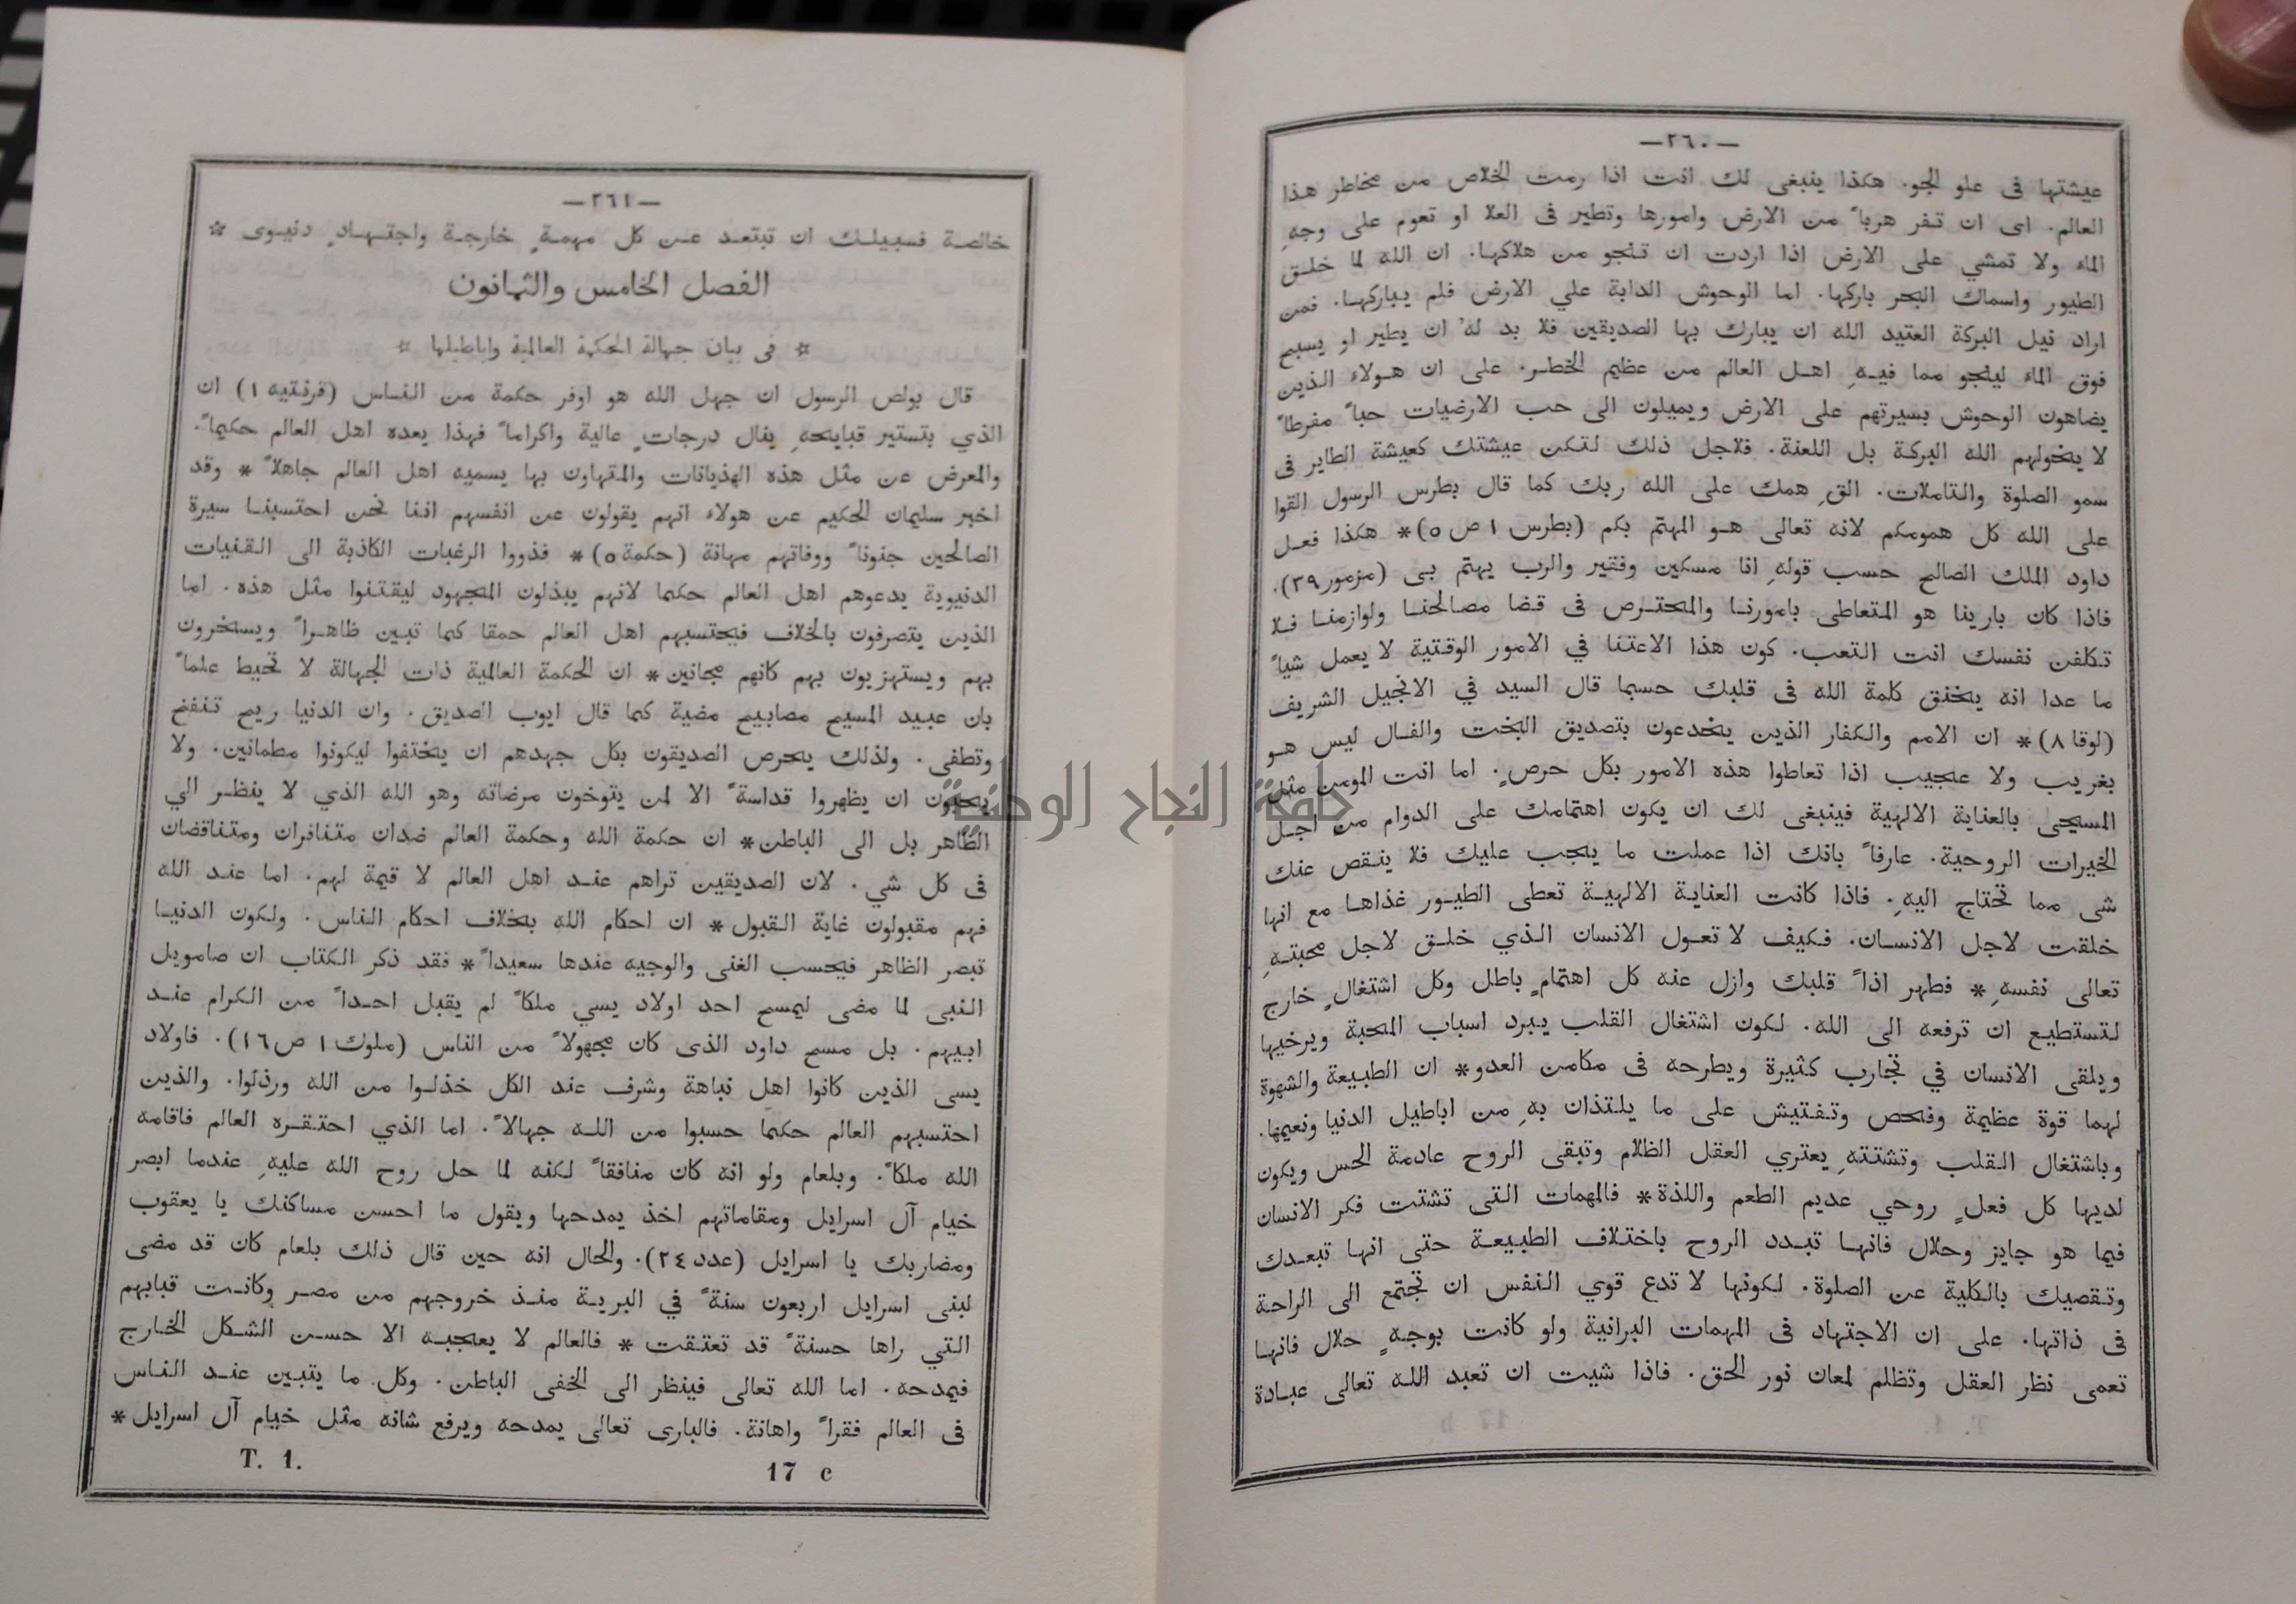 —٢٦٠—
عيشتها فى علو الجو. هكذا ينبغى لك انت اذا رمت الخلاص من مخاطر هذا
العالم. اى ان تفر هرباً من الارض وامورها وتطير فى العلا او تعوم على وجهِ
الماء ولا تمشي على الارض اذا اردت ان تنجو من هلاكها. ان الله لما خلق
الطيور واسماك البحر باركها. اما الوحوش الدابة علي الارض فلم يباركها. فمن
اراد نيل البركة العتيد الله ان يبارك بها الصديقين فلا بد لهُ ان يطير او يسبح
فوق الماء لينجو مما فيهِ اهل العالم من عظيم الخطر. على ان هولاء الذين
يضاهون الوحوش بسيرتهم على الارض ويميلون الى حب الارضيات حباً مفرطاً
لا يخولهم الله البركة بل اللعنة. فلاجل ذلك لتكن عيشتك كعيشة الطاير فى
سمو الصلوة والتاملات. القِ همك على الله ربك كما قال بطرس الرسول القوا
على الله كل همومكم لانه تعالى هو المهتم بكم (بطرس ١ ص ٥)* هكذا فعل
داود الملك الصالح حسب قولهِ انا مسكين وفقير والرب يهتم بى (مزمور ٣٩).
فاذا كان بارينا هو المتعاطى بامورنا والمحترص فى قضا مصالحنا ولوازمنا فلا
تكلفن نفسك انت التعب. كون هذا الاعتنا في الامور الوقتية لا يعمل شياً
ما عدا انه يخنق كلمة الله فى قلبك حسبما قال السيد في الانجيل الشريف
(لوقا ٨)* ان الامم والكفار الذين ينخدعون بتصديق البخت والفال ليس هو
بغريب ولا عجيب اذا تعاطوا هذه الامور بكل حرصٍ. اما انت المومن مثل
المسيحى بالعناية الالهية فينبغى لك ان يكون اهتمامك على الدوام من اجل
الخيرات الروحية. عارفاً بانك اذا عملت ما يجب عليك فلا ينقص عنك
شى مما تحتاج اليهِ. فاذا كانت العناية الالهية تعطى الطيور غذاها مع انها
خلقت لاجل الانسان. فكيف لا تعول الانسان الذي خلق لاجل محبتهِ
تعالى نفسهِ * فطهر اذاً قلبك وازل عنه كل اهتمامٍ باطل وكل اشتغالٍ خارج
لتستطيع ان ترفعه الى الله. لكون اشتغال القلب يبرد اسباب المحبة ويرخيها
ويلقى الانسان في تجارب كثيرة ويطرحه فى مكامن العدو* ان الطبيعة والشهوة
لهما قوة عظيمة وفحص وتفتيش على ما يلتذان بهِ من اباطيل الدنيا ونعيمها.
وباشتغال القلب وتشتتهِ يعتري العقل الظلام وتبقى الروح عادمة الحس ويكون
لديها كل فعلٍ روحي عديم الطعم واللذة* فالمهمات التى تشتت فكر الانسان
فيما هو جايز وحلال فانها تبدد الروح باختلاف الطبيعة حتى انها تبعدك
وتقصيك بالكلية عن الصلوة. لكونها لا تدع قوي النفس ان تجتمع الى الراحة
فى ذاتها. على ان الاجتهاد فى المهمات البرانية ولو كانت بوجهٍ حلال فانها
تعمى نظر العقل وتظلم لمعان نور الحق. فاذا شيت ان تعبد الله تعالى عبادة
—٢٦١—
خالصة فسبيلك ان تبتعد عن كل مهمةٍ خارجة واجتهادٍ دنيوى *
الفصل الخامس والثمانون
* فى بيان جهالة الحكمة العالمية واباطيلها *
قال بولص الرسول ان جهل الله هو اوفر حكمة من الناس (قرنتيه ١) ان
الذي بتستير قبايحهِ ينال درجاتٍ عالية واكراماً فهذا يعده اهل العالم حكيماً.
والمعرض عن مثل هذه الهذيانات والمتهاون بها يسميه اهل العالم جاهلاً * وقد
اخبر سليمان الحكيم عن هولاء انهم يقولون عن انفسهم اننا نحن احتسبنا سيرة
الصالحين جنوناً ووفاتهم مهانة (حكمة ٥)* فذووا الرغبات الكاذبة الى القنيات
الدنيوية يدعوهم اهل العالم حكما لانهم يبذلون المجهود ليقتنوا مثل هذه. اما
الذين يتصرفون بالخلاف فيحتسبهم اهل العالم حمقا كما تبين ظاهراً ويسخرون
بهم ويستهزيون بهم كانهم مجانين* ان الحكمة العالمية ذات الجهالة لا تحيط علماً
بان عبيد المسيح مصابيح مضية كما قال ايوب الصديق. وان الدنيا ريح تنفخ
وتطفى. ولذلك يحرص الصديقون بكل جهدهم ان يختفوا ليكونوا مطمانين. ولا
يحبون ان يظهروا قداسةً الا لمن يتوخون مرضاته وهو الله الذي لا ينظر الي
الظاهر بل الى الباطن* ان حكمة الله وحكمة العالم ضدان متنافران ومتناقضان
فى كل شي. لان الصديقين تراهم عند اهل العالم لا قيمة لهم. اما عند الله
فهم مقبولون غاية القبول* ان احكام الله بخلاف احكام الناس. ولكون الدنيا
تبصر الظاهر فيحسب الغنى والوجيه عندها سعيداً* فقد ذكر الكتاب ان صامويل
النبى لما مضى ليمسح احد اولاد يسي ملكاً لم يقبل احداً من الكرام عند
ابيهم. بل مسح داود الذى كان مجهولاً من الناس (ملوك ١ ص ١٦). فاولاد
يسى الذين كانوا اهل نباهة وشرف عند الكل خذلوا من الله ورذلوا. والذين
احتسبهم العالم حكما حسبوا من الله جهالاً. اما الذي احتقره العالم فاقامه
الله ملكاً. وبلعام ولو انه كان منافقاً لكنه لما حل روح الله عليهِ عندما ابصر
خيام آل اسرايل ومقاماتهم اخذ يمدحها ويقول ما احسن مساكنك يا يعقوب
ومضاربك يا اسرايل (عدد ٢٤). والحال انه حين قال ذلك بلعام كان قد مضى
لبنى اسرايل اربعون سنةً في البرية منذ خروجهم من مصر وكانت قبابهم
التي راها حسنةً قد تعتقت * فالعالم لا يعجبه الا حسن الشكل الخارج
فيمدحه. اما الله تعالى فينظر الى الخفى الباطن. وكل ما يتبين عند الناس
فى العالم فقراً واهانة. فالبارى تعالى يمدحه ويرفع شانه مثل خيام آل اسرايل*
T. 1. 17 c
جامعة النجاح الوطنية